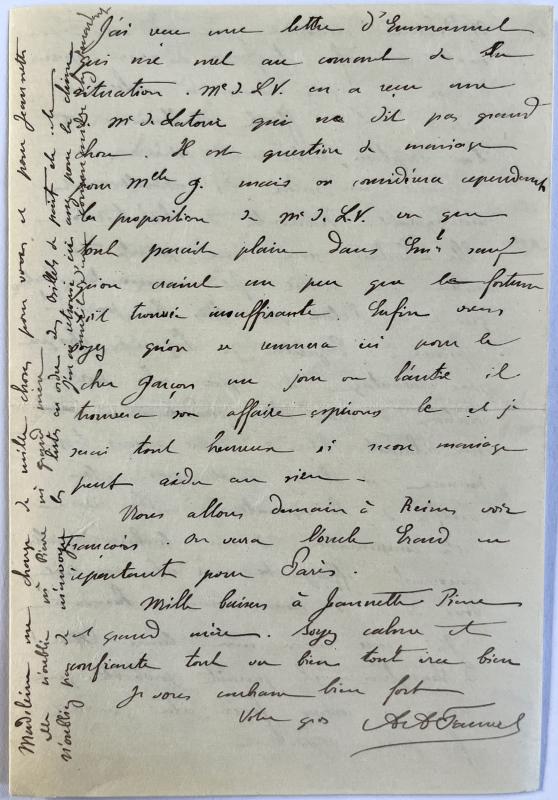 J'ai reçu une lettre d'Emmanuel
qui me met au courant de la
situation. Me d. L.V. en a reçu une
de Me de Latour qui ne dit pas grand
chose. Il est question de mariage
pour Melle g. mais on considèrera cependant
la proposition de Me d. L.V. vu que
tout parait plaire dans Eml sauf
qu'on craint un peu que la fortune
soit trouvée insuffisante. Enfin vous
voyez qu'on se remuera ici pour le
cher garçon un jour ou l'autre il
trouvera son affaire espérons le et je
serai tout heureux si mon mariage
peut aider au sien -
Nous allons demain à Reims voir
François. On verra l'oncle Erard en
repartant pour Paris.
Mille baisers à Jeannette Pierre
et grand mère. Soyez calme et
confiante tout va bien tout ira bien
Je vous embrasse bien fort
Votre gros
Madeleine me charge de mille choses pour vous et pour Jeannette
elle n'oublie ni Pierre ni grand mère
N'oubliez pas de m'envoyer les listes en ordre des billets de part de